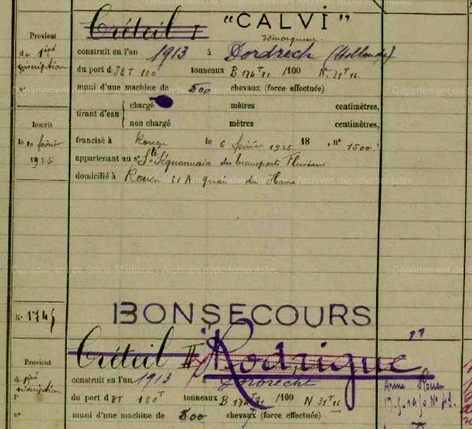 Créteil I "CALVI"
Provient de 1ère inscription
Remorqueur
construit en l'an 1913 à Dordrech (Hollande)
du port d 8T 180 tonneaux B 174T 91 /100 N 31T 15
muni d'une machine de 500 chevaux (force effectuée)
tirant d'eau
chargé mètres centimètres,
non chargé mètres centimètres,
Inscrit le 10 février 1925
francisé à Rouen le 6 février 1925 18 , n° 1500
appartenant au Sté Séquanaise de transport Fluviaux
domicilié à Rouen 21 A quai du Havre
Département de Seine-Maritime - Archives départementales
BONSECOURS
N° 1745
Créteil II "Rodrigue"
Provient de 1ère inscription
construit en l'an 1913 Dordrecht
du port d 8T 180T tonneaux B 174T 91 /100 N 31T 15
muni d'une machine de 500 chevaux (force effectuée)